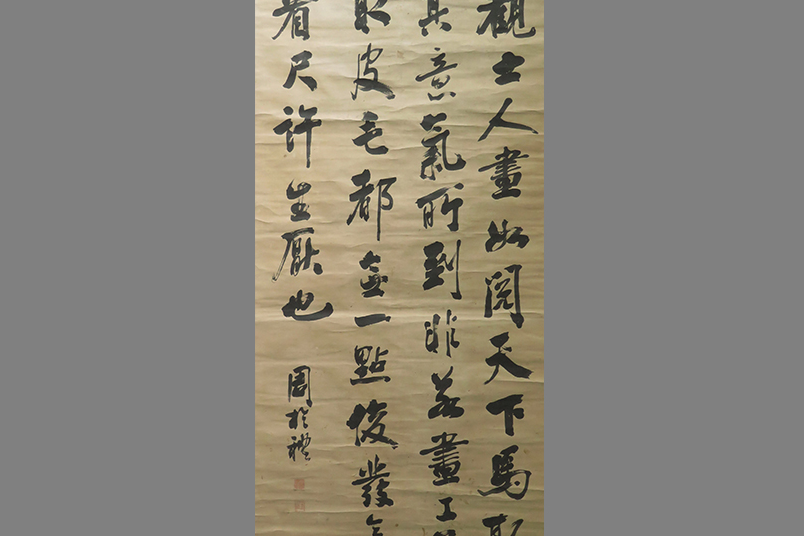 觀士人畫如閱天下馬取
其意氣所到非若畫工
取皮毛都無一點俊發
看尺許生厭也
周於禮